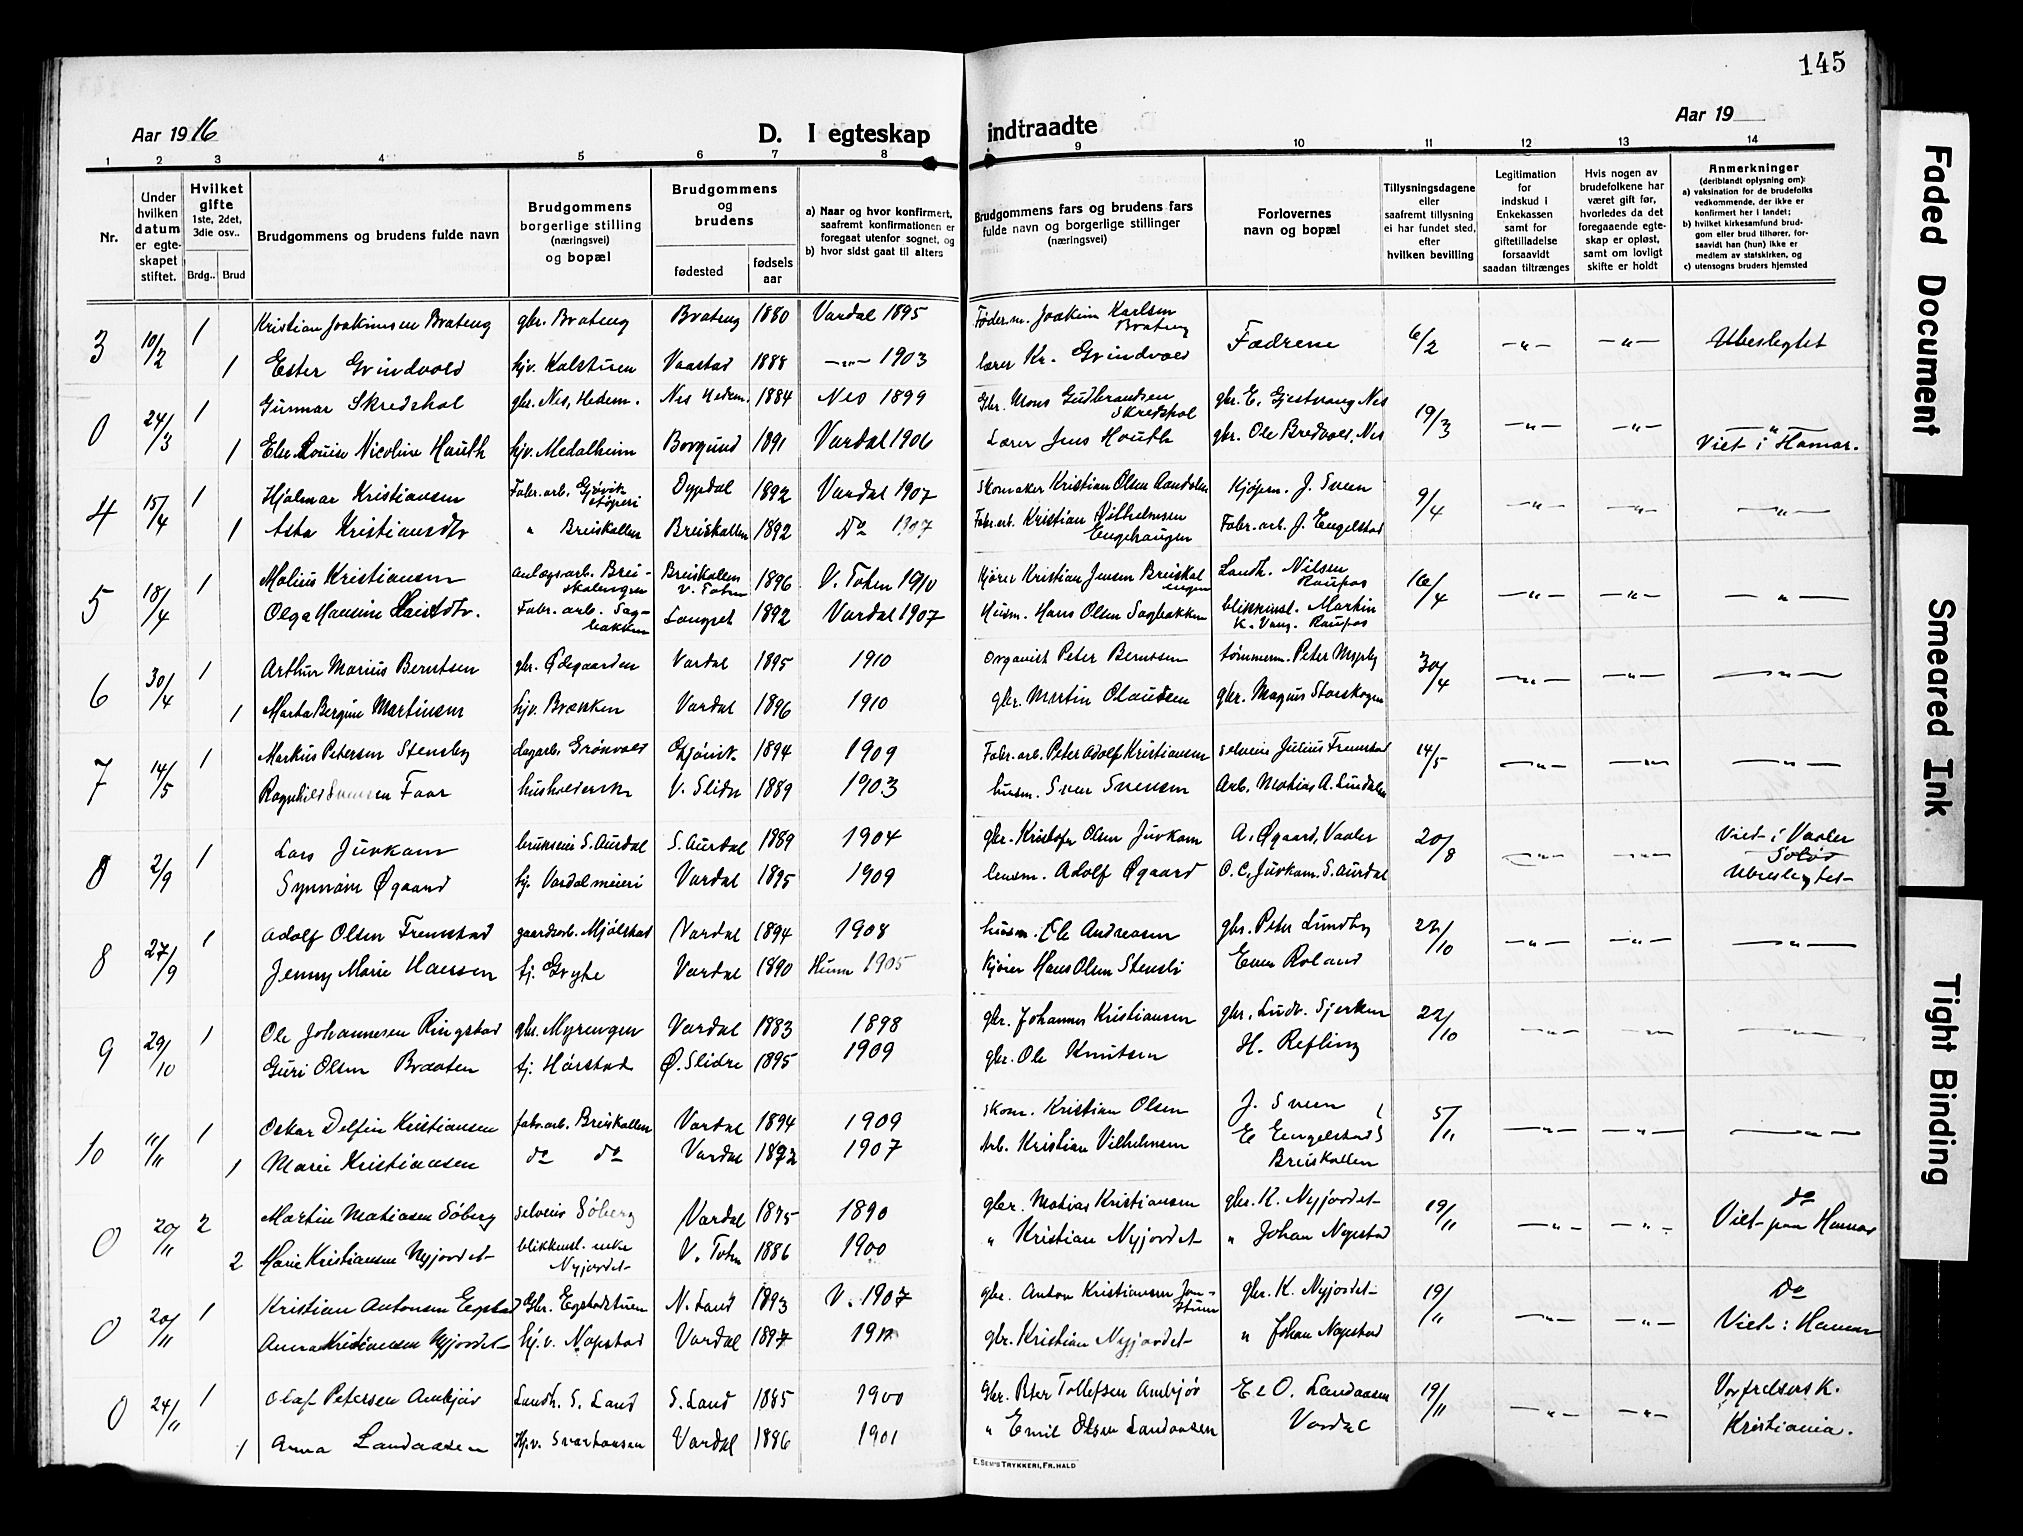 145
Aar 1916
D. I egteskap
indtraadte
Aar 19
1 2 3 4 5 6 7 8 9 10 11 12 13 14
Nr.
Under hvilken datum er egteskapet stiftet.
Hvilket gifte 1ste, 2det, 3die osv..
Brdg.. Brud
Brudgommens og brudens fulde navn
Brudgommens borgerlige stilling (næringsvei) og bopæl
Brudgommens og brudens
fødested
fødsels aar
a) Naar og hvor konfirmert, saafremt konfirmationen er foregaat utenfor sognet, og
b) hvor sidst gaat til alters
Brudgommens fars og brudens fars fulde navn og borgerlige stillinger (næringsvei)
Forlovernes navn og bopæl
Tillysningsdagene eller saafremt tillysning ei har fundet sted, efter hvilken bevilling
Legitimation for indskud i Enkekassen samt for giftetilladelse forsaavidt saadan tiltrænges
Hvis nogen av brudefolkene har været gift før, hvorledes da det foregaaende egteskap er opløst, samt om lovligt skifte er holdt
Anmerkninger (deriblandt oplysning om):
a) vaksination for de brudefolks vedkommende, der ikke er konfirmert her i landet;
b) hvilket kirkesamfund brudgom eller brud tilhører, forsaavidt han (hun) ikke er medlem av statskirken, og
c) utensogns bruders hjemsted
3 10/2 1 Kristian Joakimsen Brateng gbr. Brateng Brateng 1880 Vardal 1895 Føder.m. Joakim Karlsen Brateng Fædrene 6/2 —„— —„— Ubeslegtet
1 Ester Grindvold hjv. Kalstuen Vaastad 1888 —„— 1903 Lærer Kr. Grindvold
0 24/3 1 Gunnar Skredshol gbr. Nes, Hedem. Nes Hedem. 1884 Nes 1899 Gbr. Mons Gudbrandsen Skredshol gbr. E. Gjestvang Nes 19/3 —„— —„— —„—
1 Else Louise Nicoline Hauth hjv. Medalheim Borgund 1891 Vardal 1906 Lærer Jens Houth gbr. Ole Bredvold, Nes Viet i Hamar.
4 15/4 1 Hjalmar Kristiansen Fabr.arb. Gjøvik støperi Dypdal 1892 Vardal 1907 Skomaker Kristian Olsen Kjøpm. J. Sveen 9/4 —„— —„— —„—
1 Asta Kristiansdtr „ Breiskallen Breiskallen 1892 Do 1907 Fabr.arb. Kristian Vilhelmsen Engehaugen Fabr.arb. J. Engelstad
5 18/4 1 Malius Kristiansen anlægsarb. Breiskalengen Breiskallen V. Toten 1896 V. Toten 1910 Kjører Kristian Jensen Breiskalengen Landh. Nilsen Raufos 16/4 —„— —„— —„—
Olga Hansine Fabr. arb. Sagbakken 1892 Vardal 1907 Husm. Hans Olsen Sagbakken blikkensl. Martin K. Vang. Raufos
6 30/4 1 Arthur Marius Berntsen gbr. Ødegaarden Vardal 1895 1910 Organist Peter Berntsen tømmerm. Peter Myrby 30/4 —„— —„— —„—
1 Marta Bergine Martinsen hjv. Brækken Vardal 1896 1910 gbr. Martin Olausen gbr. Magnus Storskogen
7 14/5 1 Markus Petersen Stensby dagarb. Grønvold Gjøvik. 1894 1909 Fabr.arb. Peter Adolf Kristiansen selveier Julius Fremstad 14/5 —„— —„— —„—
Ragnhild Svensen Faar husholderske V. Slidre 1889 1903 husm. Sven Svensen Arb. Matias A. Lundalen
0 2/9 1 Lars Juvkam brukseier S. Aurdal S. Aurdal 1889 1904 gbr. Kristofer Olsen Juvkam A. Øgaard, Vaaler 20/8 —„— —„— Viet i Vaaler Solør
Synnøve Øgaard hj. Vardal meieri Vardal 1895 1909 Adolf Øgaard O. C. Juvkam. S. Aurdal Ubeslegtet
8 27/9 1 Adolf Olsen Fremstad gaardsarb. Mjølstad Vardal 1894 1908 husm. Ole Andreasen gbr. Peter Lundby 22/10 —„— —„— —„—
Jenny Marie Hansen tj. Gryte Vardal 1890 Hunn 1905 kjører Hans Olsen Stensli Even Roland
9 29/10 1 Ole Johannesen Ringstad gbr. Myrengen Vardal 1883 1898 gbr. Johannes Kristiansen gbr. Ludv. Gjerken 22/10 —„— —„— —„—
Guri Olsen Braaten tj. Hørstad Ø. Slidre 1895 1909 gbr. Ole Knutsen H. Refling
10 11/11 1 Oskar Delfin Kristiansen fabr.arb. Breiskallen Vardal 1894 1909 Skom. Kristian Olsen J. Sveen 5/11 —„— —„— —„—
1 Marie Kristiansen do do Vardal 1892 1907 Arb. Kristian Vilhelmsen E Engelstad Breiskallen
0 20/11 2 Martin Matiasen Søberg Selveier Søberg Vardal 1875 1890 gbr. Matias Kristiansen gbr. K. Nyjordet 19/11 —„— —„— do
2 Marie Kristiansen Nyjordet blikkensl. enke Nyjordet V. Toten 1886 1900 „ Kristian Nyjordet „ Johan Nøpstad Viet paa Hamar
0 20/11 1 Kristian Antonsen Egstad Gbr. Egstadstuen N. Land 1893 V. 1907 gbr. Anton Kristiansen gbr. K. Nyjordet 19/11 —„— —„— Do
Anna Kristiansen Nyjordet hj.v. Nøpstad Vardal gbr. Kristian Nyjordet „ Johan Nøpstad Viet i Hamar
0 24/11 1 Olaf Petersen Ambjør Landh. S. Land S. Land 1885 1900 Gbr. Peter Tollefsen Ambjør E. O. Landaasen 19/11 —„— —„— Vorfrelsers K.
1 Anna Landaasen Hjv. Svarhansen Vardal 1886 1901 „ Emil Olsen Landaasen Vardal Kristiania.
E. SEM'S TRYKKERI, FR.HALD
Faded Document
Smeared Ink
Tight Binding